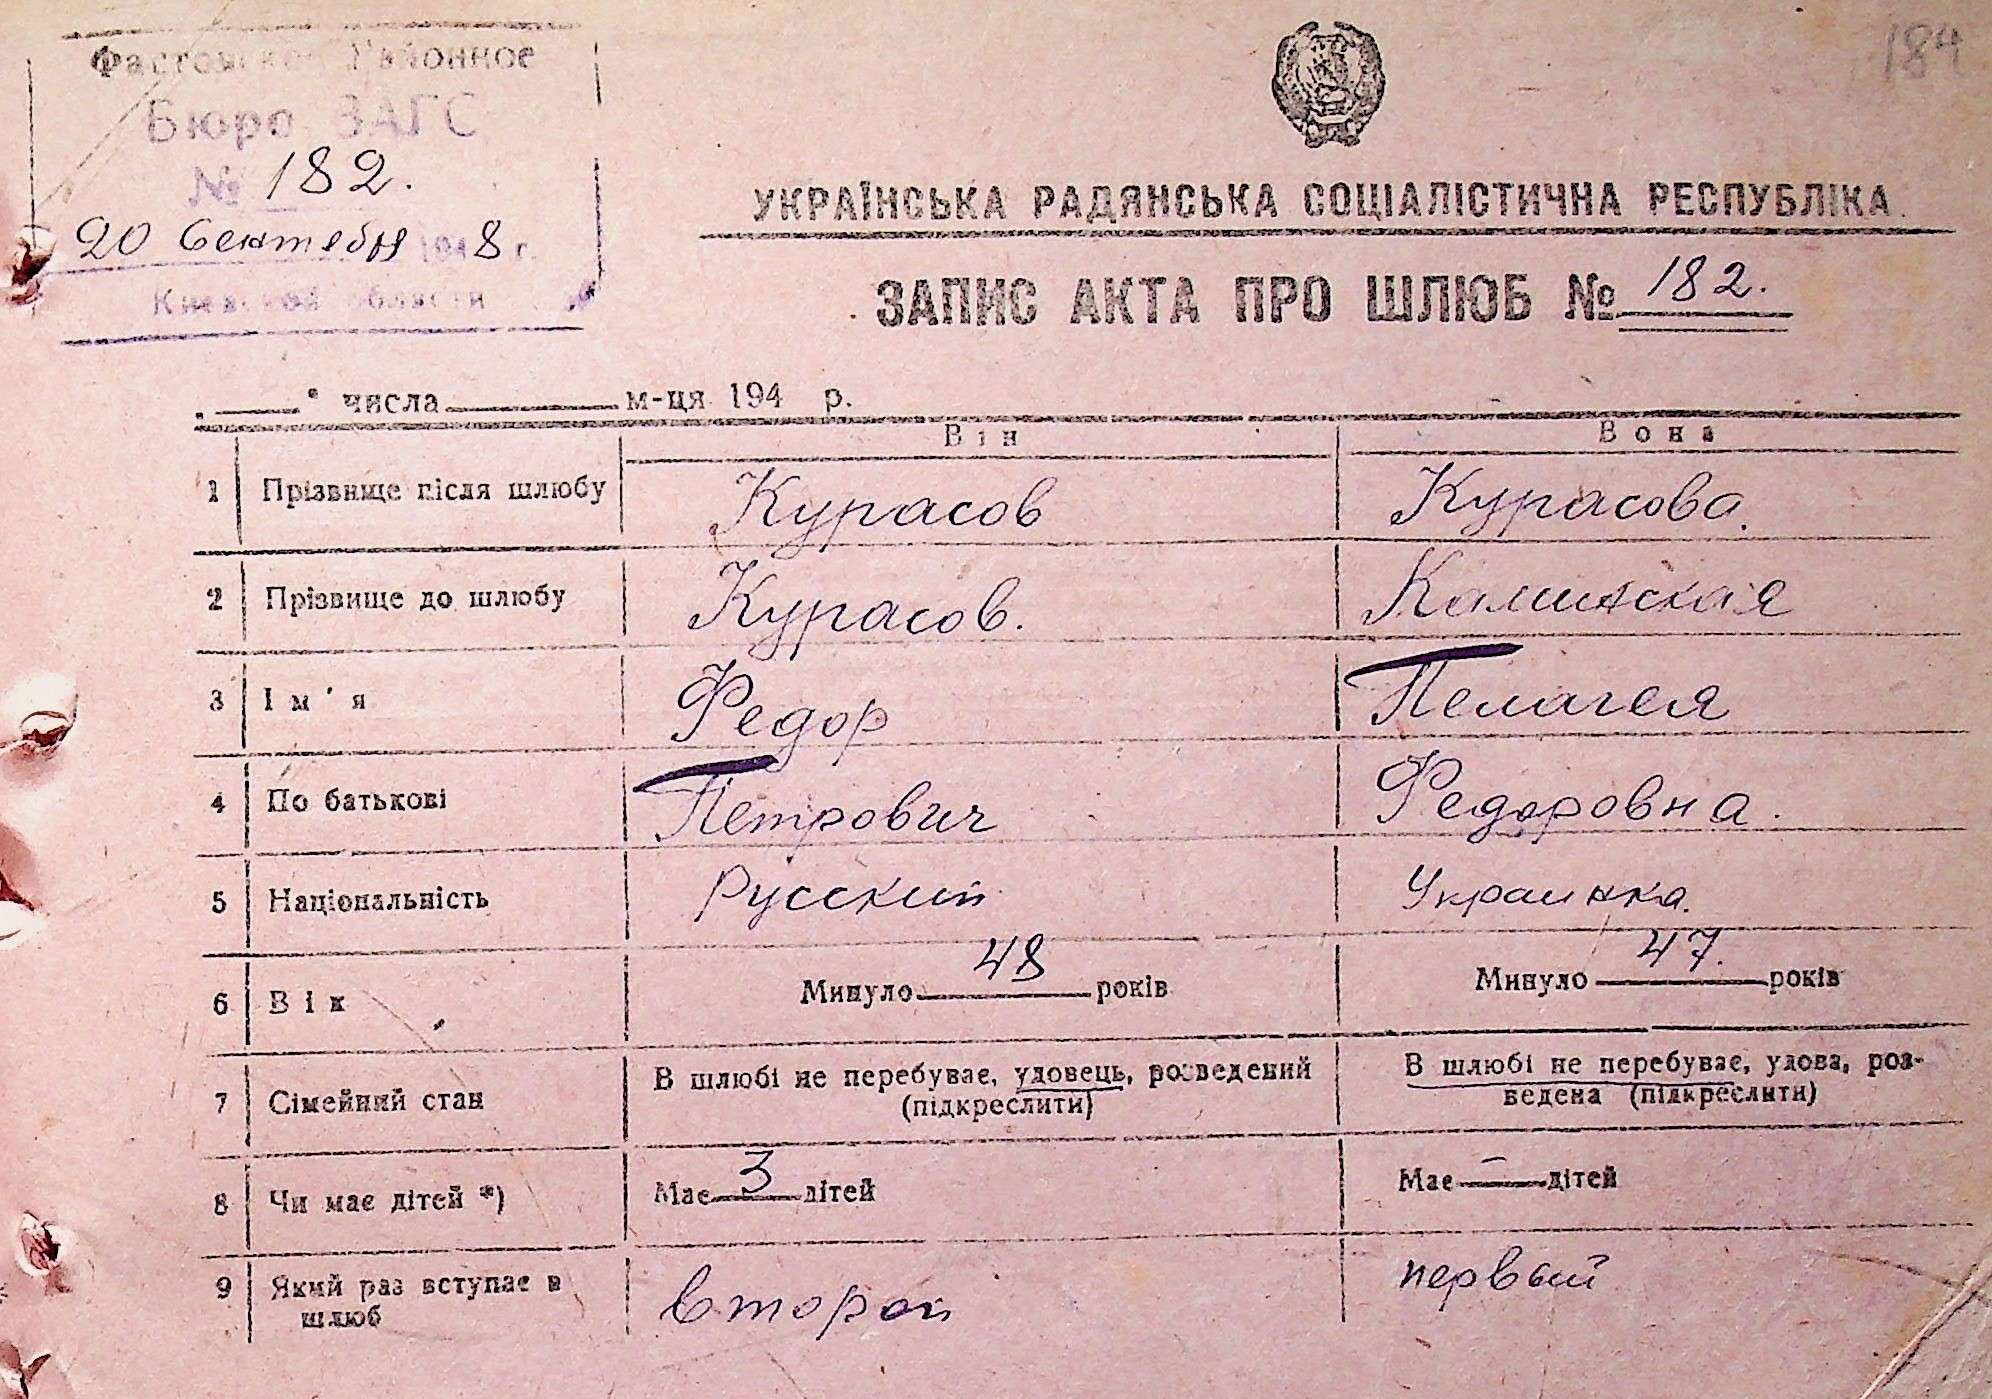 184
Фастовское Районное
Бюро ЗАГС
№ 182.
20 Сентября 1948 г.
Киевской области
УКРАЇНСЬКА РАДЯНСЬКА СОЦІАЛІСТИЧНА РЕСПУБЛІКА
ЗАПИС АКТА ПРО ШЛЮБ № 182.
„ " числа м-ця 194 р.
Він Вона
1 Прізвище після шлюбу Курасов Курасова.
2 Прізвище до шлюбу Курасов. Калинская
3 Ім'я Федор Пелагея
4 По батькові Петрович Федоровна.
5 Національність Русский Украинка.
6 Вік Минуло 48 років Минуло 47. років
7 Сімейний стан В шлюбі не перебуває, удовець, розведений (підкреслити) В шлюбі не перебуває, удова, роз-
ведена (підкреслити)
8 Чи має дітей *) Має 3 дітей Має — дітей
9 Який раз вступає в шлюб второй первый